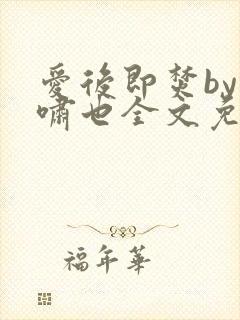 愛後即焚by
嘯也全文免
福年華